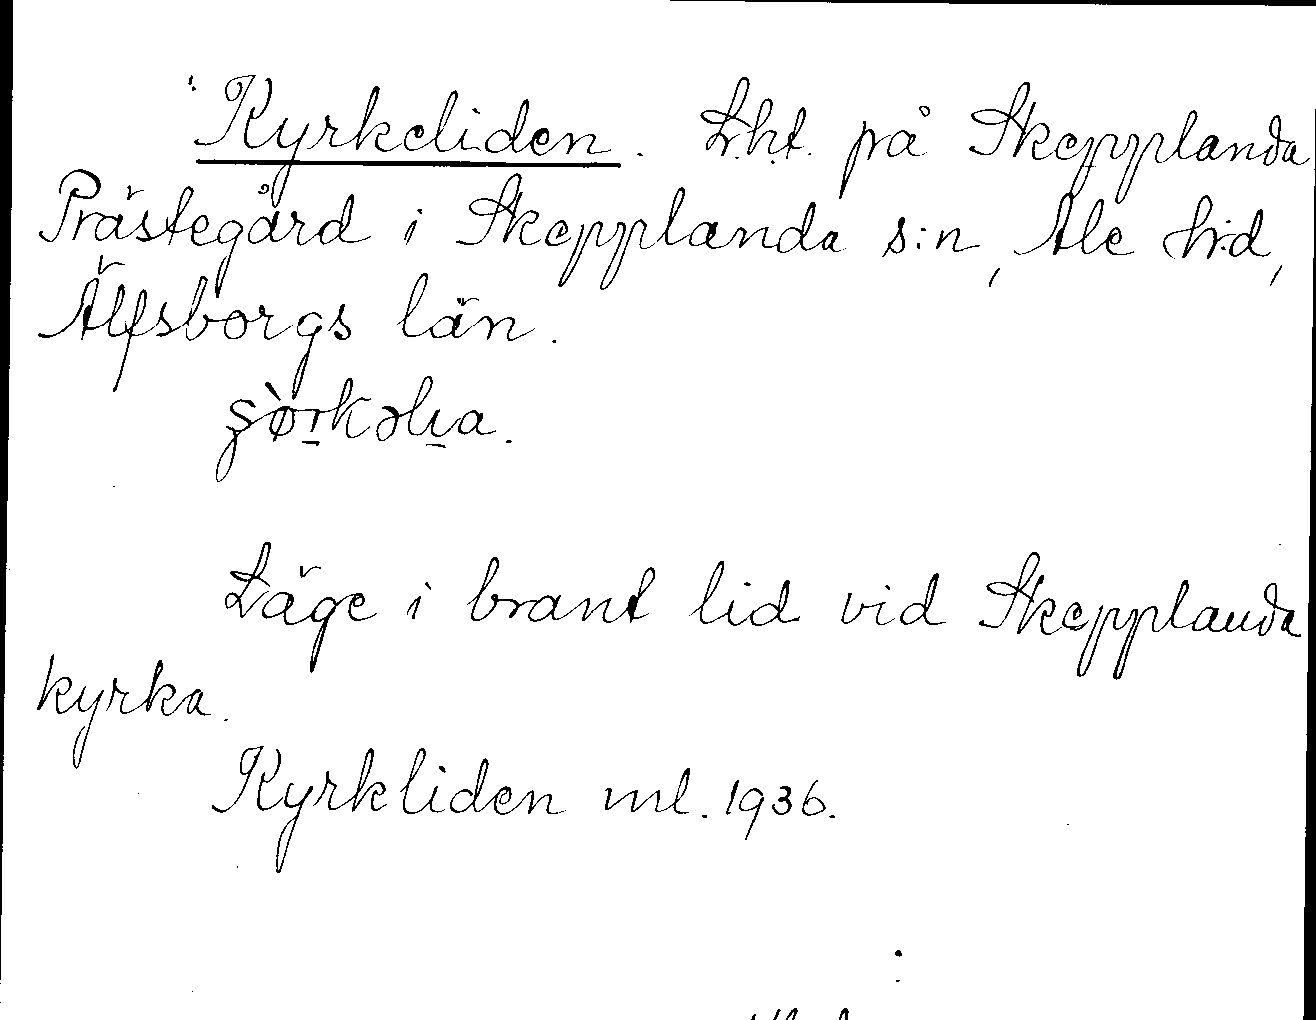 Kyrkeliden. L.h.t. på Skepplanda
Prästegård i Skepplanda s:n, Ale h:d,
Älfsborgs län.
Läge i brant lid vid Skepplanda
kyrka.
Kyrkliden ml. 1936.